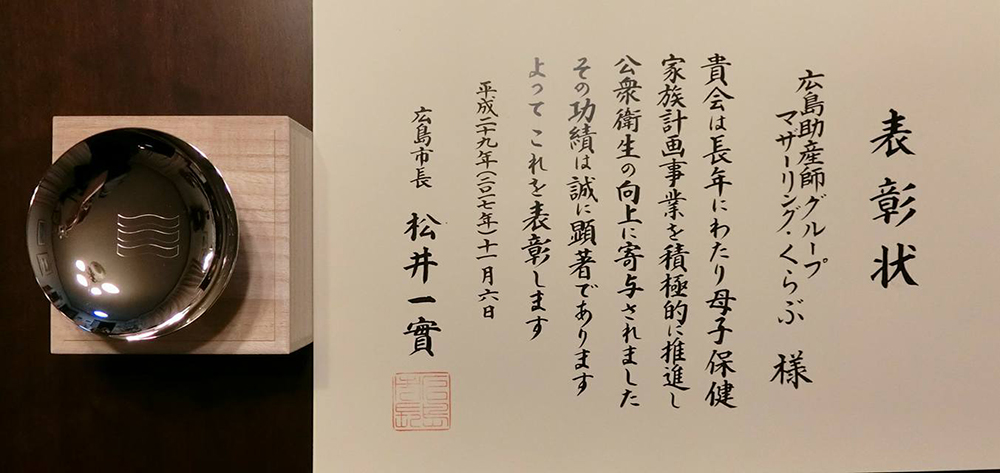 表彰状
広島助産師グループ
マザーリング・くらぶ 様
貴会は長年にわたり母子保健
家族計画事業を積極的に推進し
公衆衛生の向上に寄与されました
その功績は誠に顕著であります
よってこれを表彰します
平成二十九年(二〇一七年)十一月六日
広島市長 松井一實